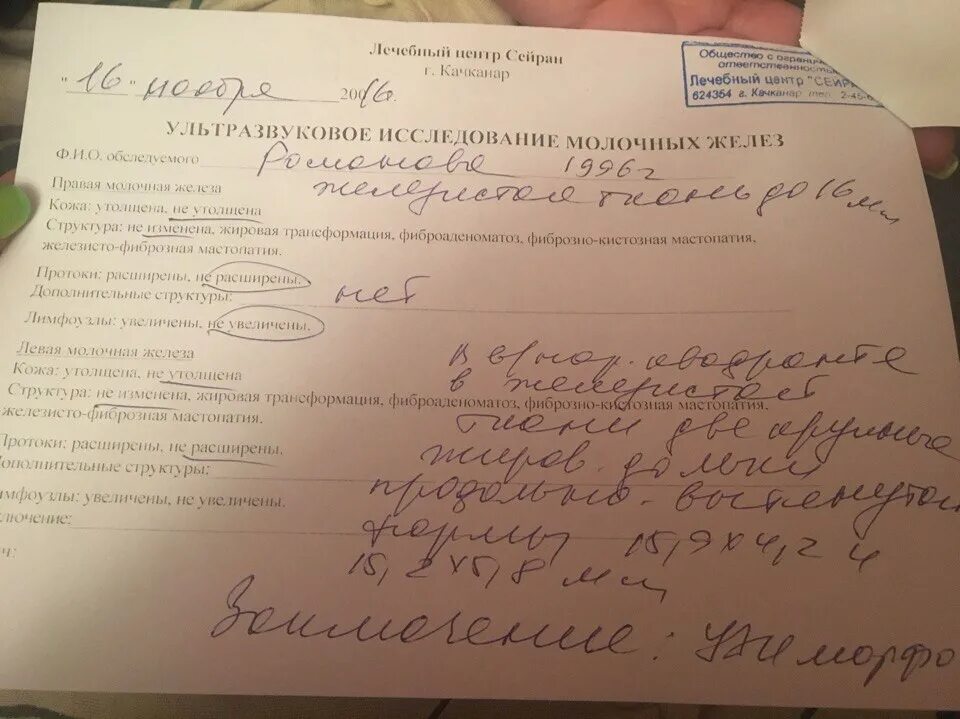 Лечебный центр Сейран
г. Качканар
"16" ноября 2016г.
Общество с ограни
ответственностью
Лечебный центр "СЕЙР
624354 г. Качканар тел. 2-45-6
УЛЬТРАЗВУКОВОЕ ИССЛЕДОВАНИЕ МОЛОЧНЫХ ЖЕЛЕЗ
Ф.И.О. обследуемого Романова 1996г
Правая молочная железа железистая ткань до 16 мм
Кожа: утолщена, не утолщена
Структура: не изменена, жировая трансформация, фиброаденоматоз, фиброзно-кистозная мастопатия,
железисто-фиброзная мастопатия.
Протоки: расширены, не расширены.
Дополнительные структуры: нет
Лимфоузлы: увеличены, не увеличены.
Левая молочная железа в в/нар. квадранте
Кожа: утолщена, не утолщена в железистой
Структура: не изменена, жировая трансформация, фиброаденоматоз, фиброзно-кистозная мастопатия,
железисто-фиброзная мастопатия. ткани две крупные
Протоки: расширены, не расширены. жиров. дольки
Дополнительные структуры: продольно-вытянутой
имфоузлы: увеличены, не увеличены.
ключение: формы 15,9х4,2 и
ч: 15,2х5,8 мм
Заключение: УЗИ морфо